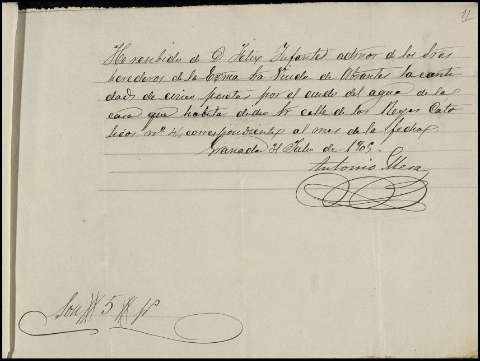 He recibido de D. Felix Infantes admor de los Sres
herederos de la Exma Sra Viuda de Abrantes la canti-
dad de cinco pesetas por el cuido del agua de la
casa que habita dicho Sr calle de los Reyes Cato-
licos nº correspondientes al mes de la fecha
Granada 31 Julio de 1909.
Antonio Mesa
Son 5 p